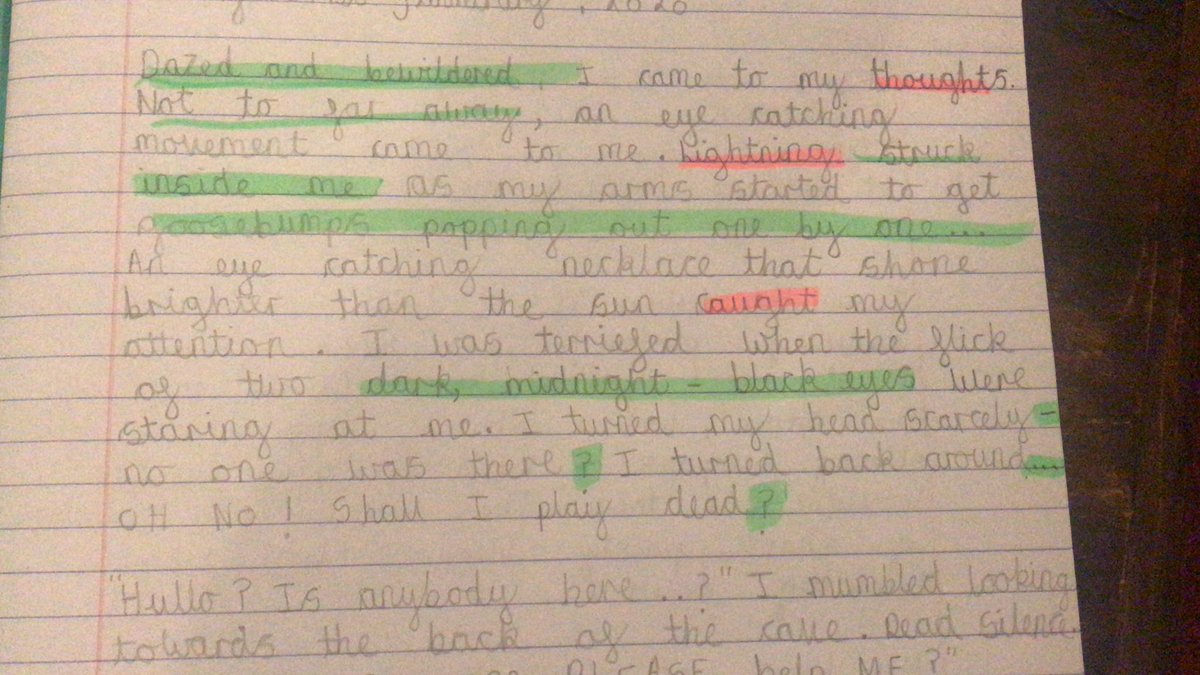 January, 2020
Dazed and bewildered, I came to my thoughts.
Not to far away, an eye catching
movement came to me. Lightning struck
inside me as my arms started to get
goosebumps popping out one by one...
An eye catching necklace that shone
brighter than the sun caught my
attention. I was terriefed when the flick
of two dark, midnight - black eyes were
staring at me. I turned my head scarcely -
no one was there? I turned back around...
OH NO! Shall I play dead?
"Hullo? Is anybody here..?" I mumbled looking
towards the back of the cave. Dead silence.
PLEASE help ME?"